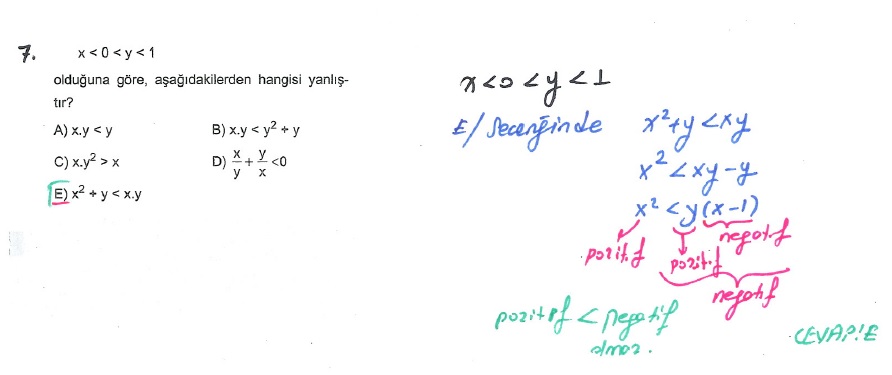 7. x < 0 < y < 1
olduğuna göre, aşağıdakilerden hangisi yanlış-
tır?
A) x.y < y B) x.y < y² + y
C) x.y² > x D) x/y + y/x <0
E) x² + y < x.y
x<0<y<1
E/ Seçeneğinde x²+y <xy
x² <xy-y
x² <y(x-1)
pozitif pozitif negatif
negatif
pozitif < negatif
olmaz.
CEVAP:E